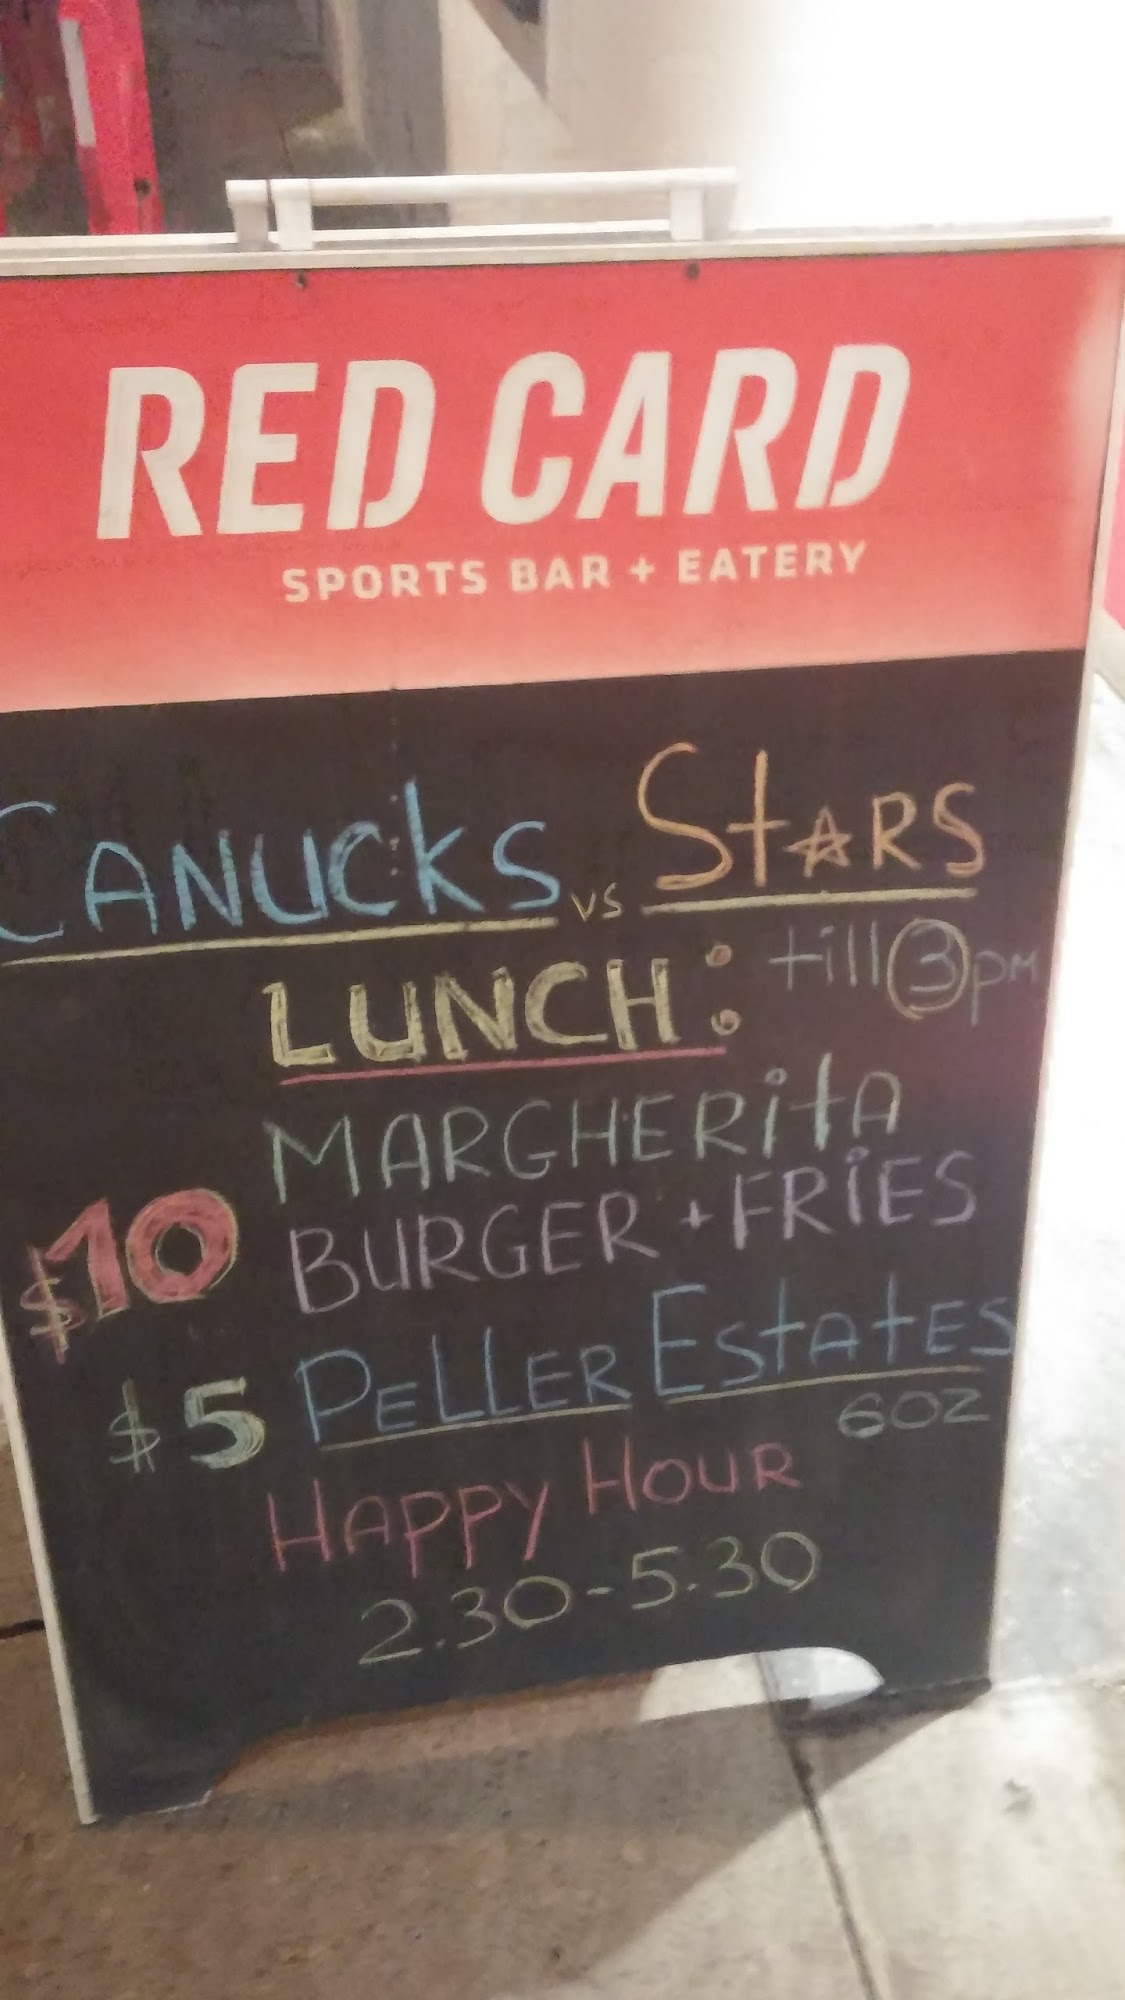 RED CARD
SPORTS BAR + EATERY
CANUCKS vs StARS
LUNCH: till 3pm
MARGHERitA
$10 BURGER + FRiES
$5 PELLER EStAtES
6OZ
HAPPY HOUR
2.30-5.30